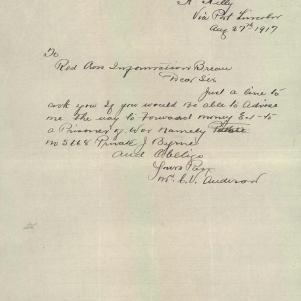 Kelly
Via Port Lincoln
Aug 27th 1917
To
Red Cross Information Bureau
Dear Sir
Just a line to
ask you If you would be able to Advise
me the way to Forward money Ect to
a Prisoner of War Namely
No 5668 Private J Byrne
And Oblige
Yours
Mr. C. V. Anderson